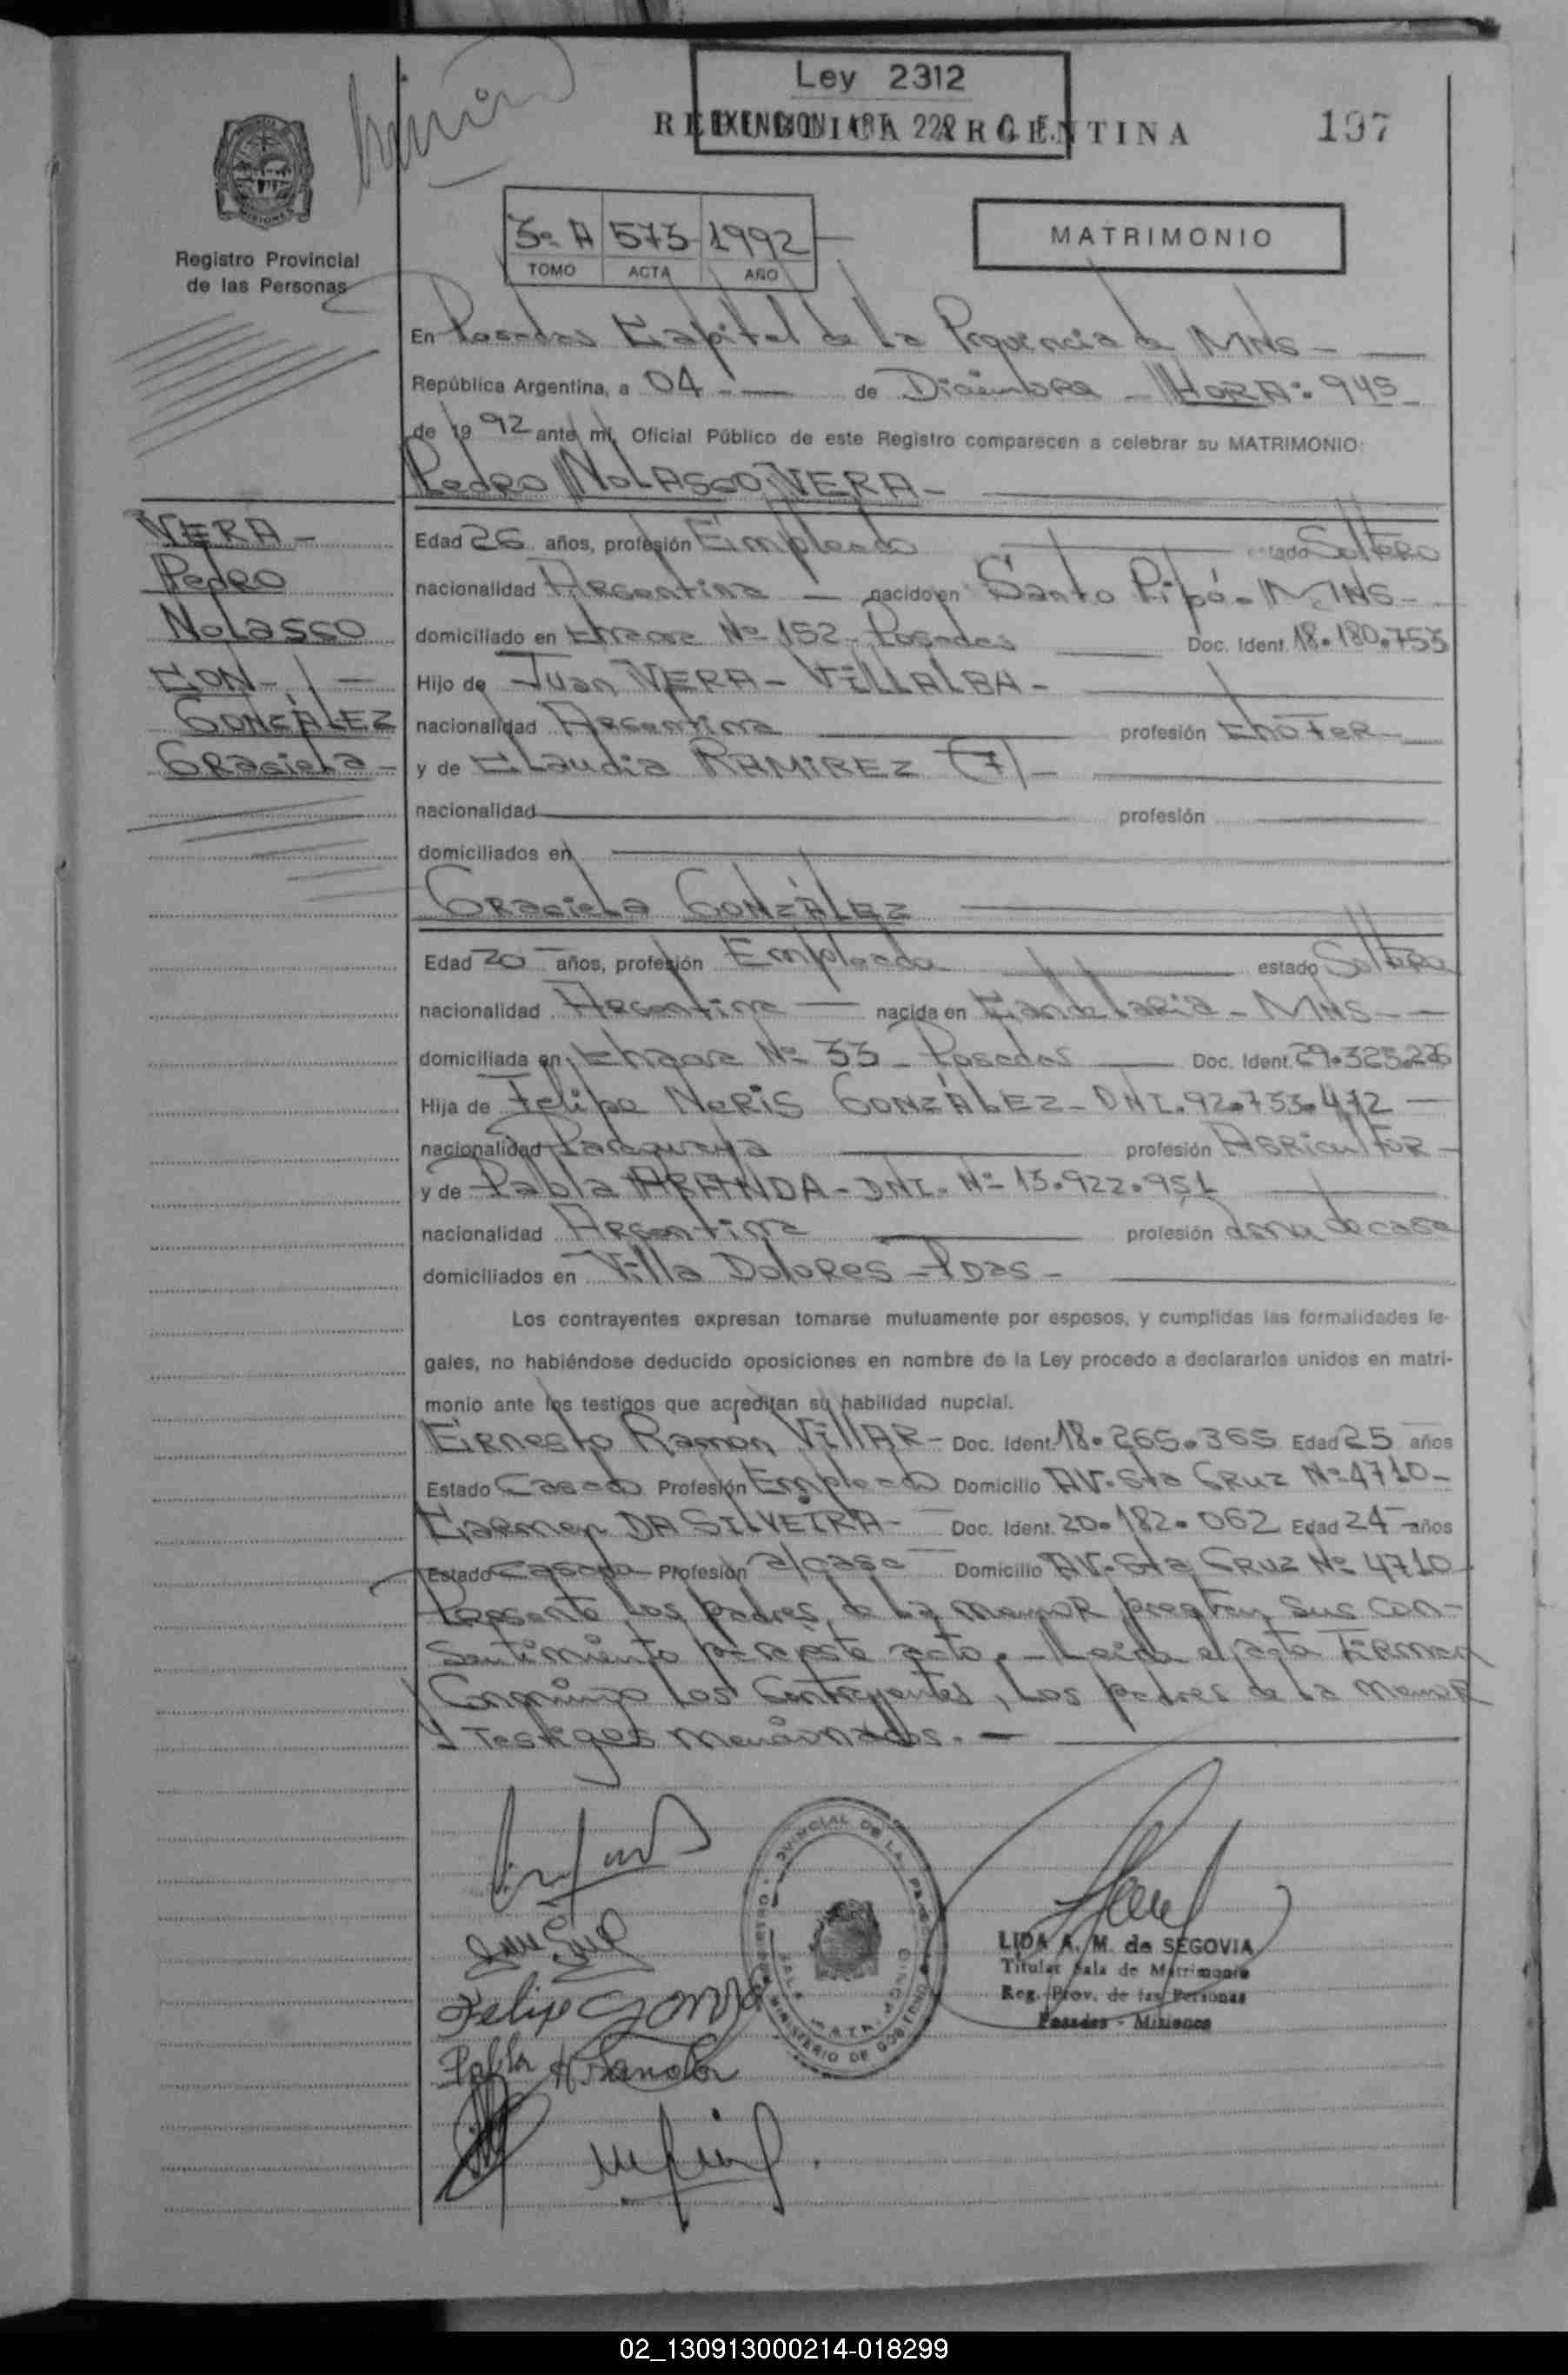 Ley 2312
REPUBLICA ARGENTINA
EXENCION ART. 228 C. F.
197
3º A 573 1992
TOMO ACTA AÑO
MATRIMONIO
Registro Provincial
de las Personas
En Posadas Capital de la Provincia de MNS -
República Argentina, a 04 - de Diciembre - HORA: 945 -
de 1992 ante mí, Oficial Público de este Registro comparecen a celebrar su MATRIMONIO:
Pedro NOLASCO VERA -
VERA -
Pedro
NoLasco
CON -
GONZÁLEZ
Graciela -
Edad 26 años, profesión Empleado estado Soltero
nacionalidad Argentina - nacido en Santo Pipó - MNS -
domiciliado en Nº 152 - Posadas Doc. Ident. 18.180.753
Hijo de Juan VERA - VILLALBA -
nacionalidad Argentina profesión Chofer -
y de Claudia RAMIREZ (F) -
nacionalidad profesión
domiciliados en
Graciela GONZÁLEZ
Edad 20 - años, profesión Empleada estado Soltera
nacionalidad Argentina - nacida en Candelaria - MNS - -
domiciliada en Nº 33 - Posadas Doc. Ident. 29.325.226
Hija de Felipe NERIS GONZÁLEZ - DNI. 92.733.472 -
nacionalidad Paraguaya profesión Agricultor -
y de Pabla ARANDA - DNI. Nº 13.922.951
nacionalidad Argentina profesión ama de casa
domiciliados en Villa Dolores - Pdas -
Los contrayentes expresan tomarse mutuamente por esposos, y cumplidas las formalidades le-
gales, no habiéndose deducido oposiciones en nombre de la Ley procedo a declararlos unidos en matri-
monio ante los testigos que acreditan su habilidad nupcial.
Ernesto Ramón VILLAR - Doc. Ident. 18.265.365 Edad 25 años
Estado Casado Profesión Empleado Domicilio AV. Sta Cruz Nº 4710 -
Carmen DA SILVEIRA - Doc. Ident. 20.182.062 Edad 24 - años
Estado Casada - Profesión a/casa Domicilio AV. Sta Cruz Nº 4710
Presente los padres de la menor prestan sus con-
sentimiento para este acto. - Leída el acta firman
conmigo los contrayentes, los padres de la menor
y testigos mencionados. -
Felipe Gonza
Pabla Aranda
LIDA A. M. de SEGOVIA
Titular Sala de Matrimonio
Reg. Prov. de las Personas
Posadas - Misiones
02_130913000214-018299